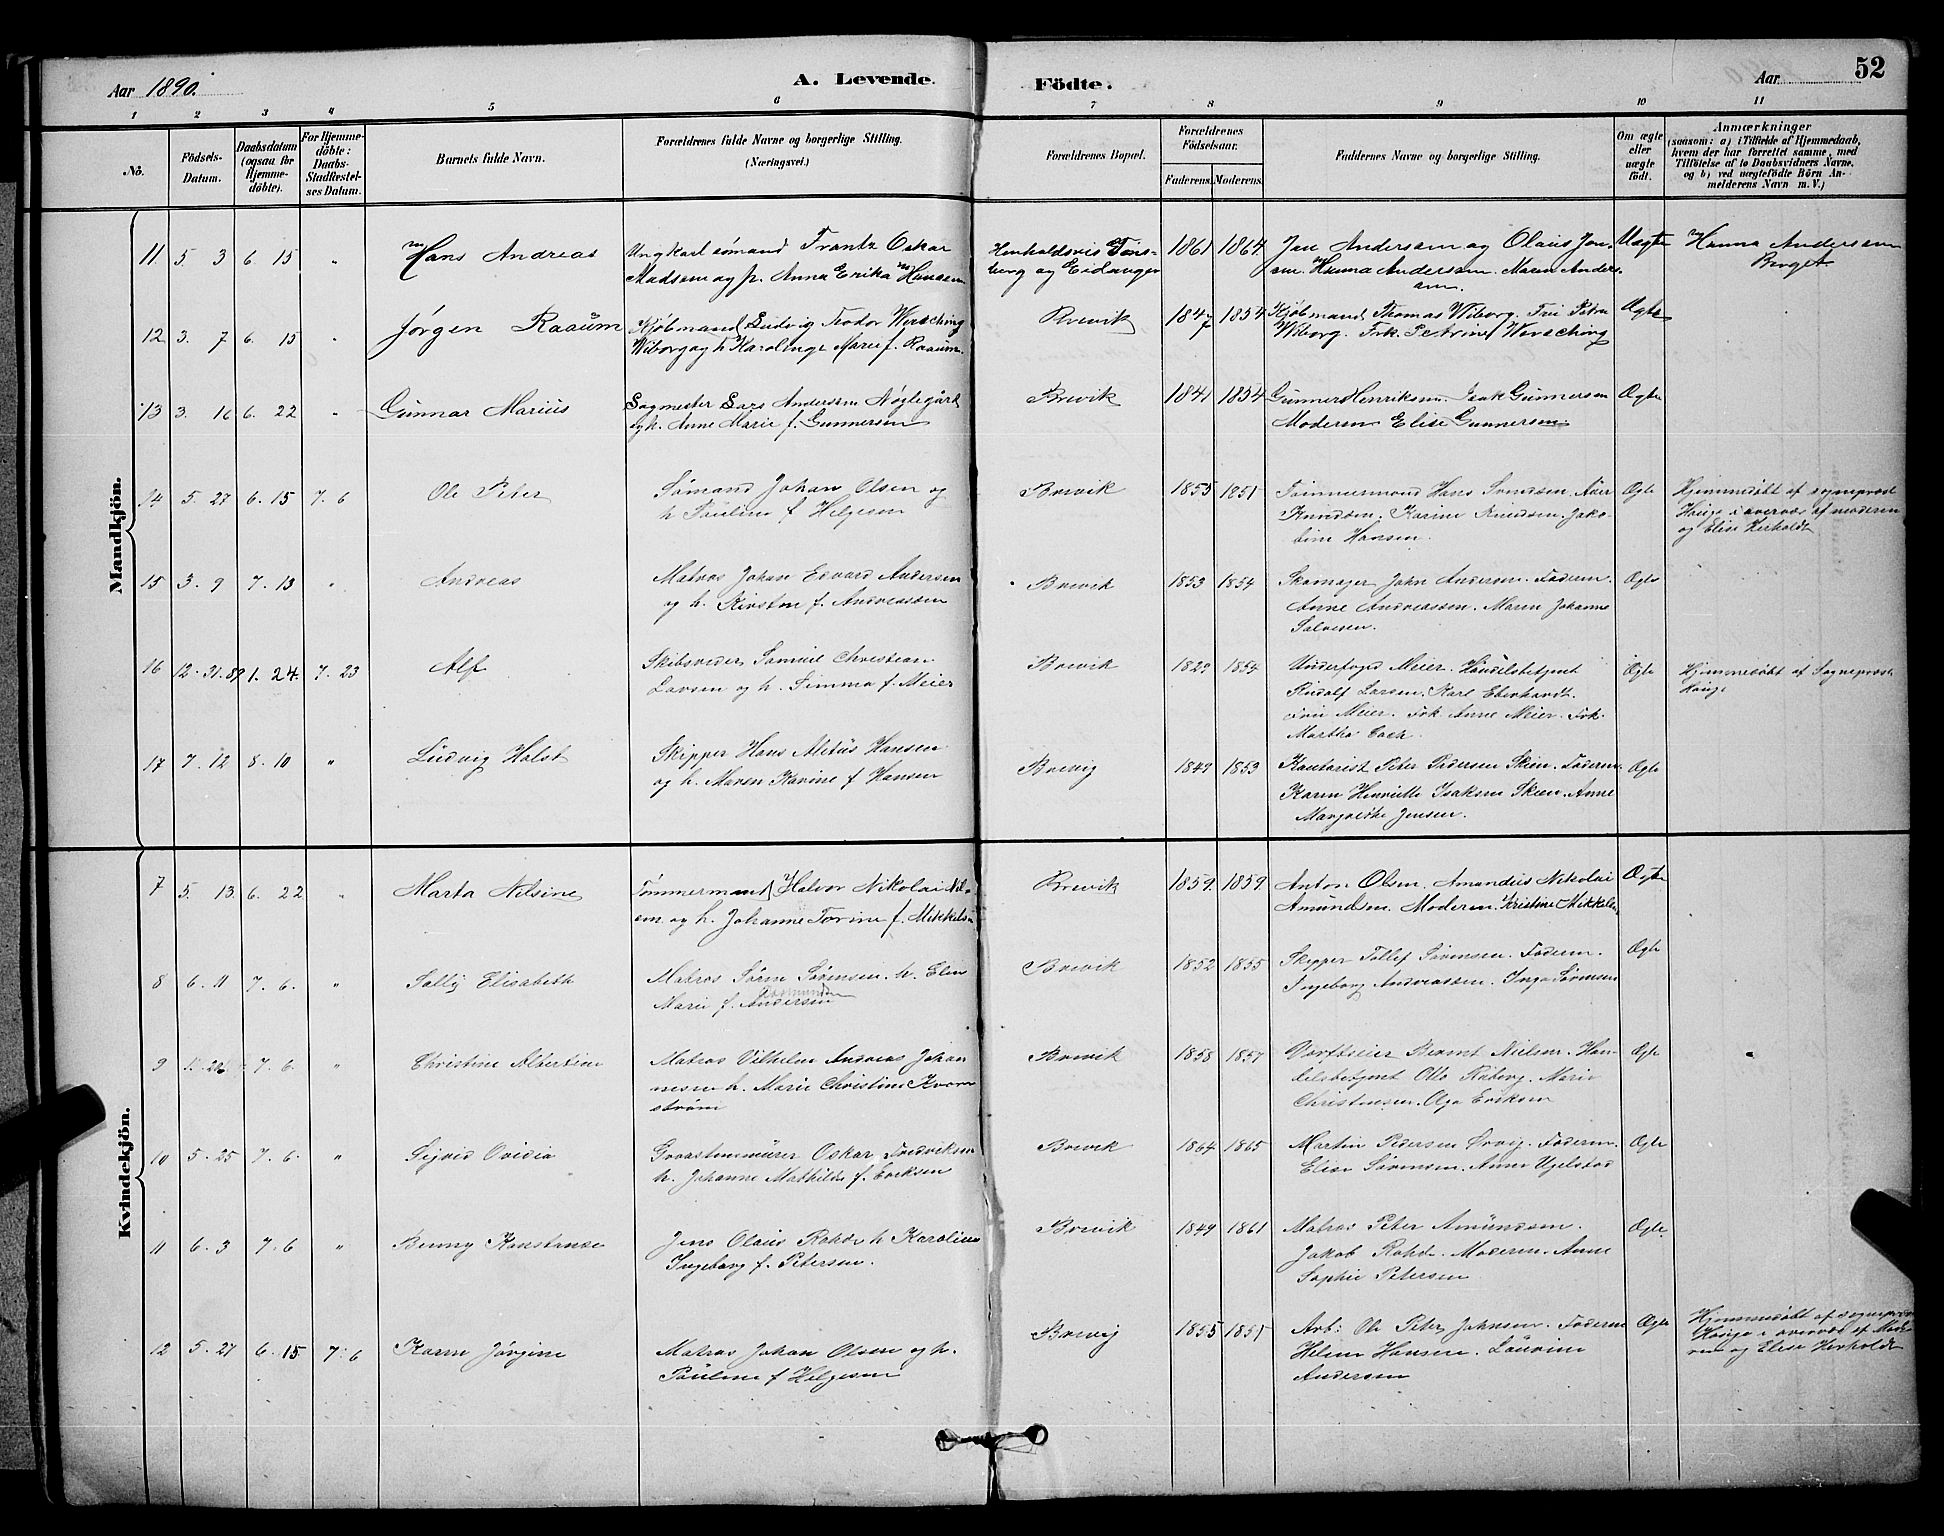 52
Aar 1890. A. Levende Födte. Aar
1 2 3 4 5 6 7 8 9 10 11
No. Födsels-Datum. Daabsdatum (ogsaa for Hjemmedöbte). For Hjemmedöbte: Daabs-Stadfæstelses Datum. Barnets fulde Navn. Forældrenes fulde Navne og borgerlige Stilling. (Næringsvei.) Forældrenes Bopæl. Forældrenes Födselsaar. Faderens. Moderens. Faddernes Navne og borgerlige Stilling. Om ægte eller uægte födt. Anmærkninger (saasom: a) i Tilfælde af Hjemmedaab, hvem der har forrettet samme, med Tilföielse af to Daabsvidners Navne, og b) ved uægtefödte Börn Anmelderens Navn m. V.)
Mandkjön.
11. 5. 3 6. 15 " Hans Andreas Ungkarl sømand Frantz Oskar 1861 1864. Jan Andersen og Olaus Jon- Uægte Hanna Andersen
Madsen og p. Anna Erika Hansen borg og Eidanger sen. Hanna Andersen. Maren Anders-
sen.
12 3. 7 6. 15 " Jörgen Raaum Kjöbmand Ludvig Teodor Wersching Brevik 1847 1854 Kjöbmand Thomas Wiborg. Fru Petra Ægte
Wiborg og h. Karoline Marie f. Raaum. Wiborg. Frk. Petrine Wersching
13 3. 16 6. 22 " Gunnar Marius Sagmester Lars Andersen Nøglegård Brevik 1841 1854 Gunner Henriksen. Isak Gunnersen Ægte
og h. Anne Marie f. Gunnersen Moderen Elise Gunnersen
14 5. 27 6. 15 7. 6 Ole Peter Sømand Johan Olsen og Brevik 1855 1851 Tømmermand Hans Svendsen. Hjemmedöbt af sogneprest
h. Pauline f. Helgesen Knudsen. Karine Knudsen. Jako- Hauge i overvær af moderen
bine Hansen. og Elise Herholdt
15 3. 9 7. 13 " Andreas Matros Johan Edvard Andersen Brevik 1853 1854 Skomager John Andersen. Faderen. Ægte
og h. Kirsten f. Andreassen Anne Andreassen. Maren Johanne
Salvesen.
16 12. 31. 89 1. 24. 7. 23 Alf Skibsreder Samuel Christian Brevik 1822 1854 Underfoged Meier. Handelsbetjent Ægte Hjemmedöbt af Sogneprest
Larsen og h. Simma f. Meier Rudolf Larsen. Karl Eberhardt. Hauge
Fru Meier. Frk. Anne Meier. Frk.
Martha
17 7. 12 8. 10 " Ludvig Holst Skipper Hans Hansen Brevig 1849 1853 Kontorist Peter Pedersen Skien. Faderen. Ægte
og h. Maren Karine f. Hansen Karen Henriette Isaksen Skien. Anne
Margrethe Jensen.
Kvindekjön.
7 5. 13. 6. 22 " Marta Nilsine Tømmermand Halvor Nikolai Nil- Brevik 1859. 1859. Anton Olsen. Amandus Nikolai Ægte
sen og h. Johanne Torine f. Mikkelsen Amundsen. Moderen. Kristine Mikkelsen
8 6. 11 7. 6. " Sally Elisabeth Matros Sören Sørensen. h. Elen Brevik 1852 1855 Skipper Tollef Sørensen. Faderen. Ægte
Marie f. Andersen Ingeborg Andreassen. Inga Sørensen
9 7. 6. " Christine Albertine Matros Vilhelm Andreas Johan- Brevik 1858 1857 Berent Nielsen. Han- Ægte
nesen h. Marie Christine Kvarn- delsbetjent Otto Raberg. Marie
strøm Christensen. Olga Eriksen
10 5. 25 7. 6. " Sigrid Ovidia Graastensmurer Oskar Fredriksen Brevik 1864 1865 Martin Pedersen Ørvig. Faderen. Ægte
h. Johanne Mathilde f. Eriksen Elise Sørensen. Anne Ugelstad
11 6. 3 7. 6 " Benny Konstanse Jens Olaus Rohde h Karoline Brevik 1849 1861 Matros Peter Amundsen. Ægte.
Ingeborg f. Petersen. Jakob Rohde. Moderen. Anne
Sophie Petersen
12 5. 27 6. 15. 7. 6 Karen Jørgine Matros Johan Olsen og h. Brevig 1855 1851 Arb: Ole Peter Johnsen. Faderen Ægte Hjemmedöbt af sogneprest
Pauline f Helgesen Helene Hansen. Laurine Hauge i overvær af Mode-
Andersen ren og Elise Herholdt